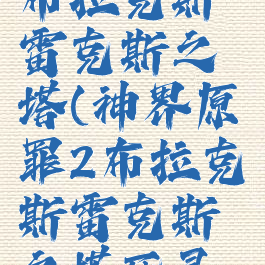 布拉克斯
雷克斯之
塔(神界原
罪2布拉克
斯雷克斯